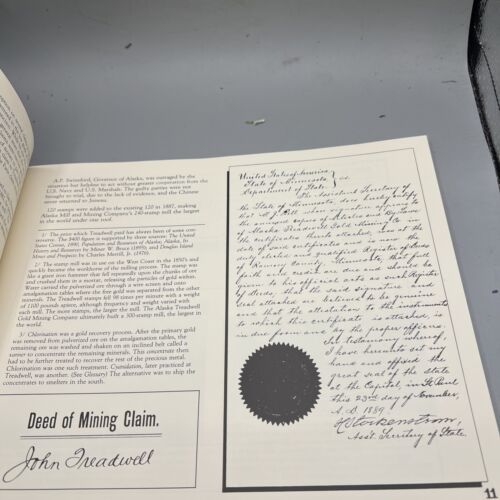 A.P. Swineford, Governor of Alaska, was outraged by the
situation but helpless to act without greater cooperation from the
U.S. Navy and U.S. Marshall. The guilty parties were not
brought to trial, due to the lack of evidence, and the Chinese
never returned to Juneau.
120 stamps were added to the existing 120 in 1887, making
Alaska Mill and Mining Company's 240-stamp mill the largest
in the world under one roof.
1/ The price which Treadwell paid has always been of some con-
troversy. The $400 figure is supported by three sources: The United
States Census, 1890, Population and Resources of Alaska; Alaska, Its
History and Resources by Miner W. Bruce (1895); and Douglas Island
Mines and Prospects by Charles Merrill, Jr. (1976).
2/ The stamp mill was in use on the West Coast in the 1850's and
quickly became the workhorse of the milling process. The stamp was
like a giant iron hammer that fell repeatedly upon the chunks of ore
and crushed them in a mortar, releasing the particles of gold within.
Water carried the pulverized ore through a wire screen and onto
amalgamation tables where the free gold was separated from the other
minerals. The Treadwell stamps fell 98 times per minute with a weight
of 1100 pounds apiece, although frequency and weight varied with
each mill. The more stamps, the larger the mill. The Alaska Treadwell
Gold Mining Company ultimately built a 300-stamp mill, the largest in
the world.
3/ Chlorination was a gold recovery process. After the primary gold
was removed from pulverized ore on the amalgamation tables, the
remaining ore was washed and shaken on an inclined belt called a
vanner to concentrate the remaining minerals. This concentrate then
had to be further treated to recover the rest of the precious metal.
Chlorination was one such treatment. Cyanidation, later practiced at
Treadwell, was another. (See Glossary) The alternative was to ship the
concentrates to smelters in the south.
Deed of Mining Claim.
John Treadwell
United States of America
State of Minnesota } ss.
Department of State
The Assistant Secretary of
the State of Minnesota does hereby certify
that W. J. Bell whose signature appears to
the annexed copies of Articles and By-laws
of Alaska Treadwell Gold Mining Co. in
the certificates thereto attached, was at the
date of said certificates and is now the
duly elected and qualified Register of Deeds
of Ramsey County, Minnesota, that full
faith and credit are due and should be
given to his official acts as such Register
of Deeds, that the said signature and
seal attached are believed to be genuine
and that the attestation to the instruments
to which this certificate is attached, is
in due form and by the proper officers.
In testimony whereof,
I have hereunto set my
hand and affixed the
great seal of the state
at the Capitol, in St. Paul
this 23rd day of November,
A. D. 1889.
Ass't. Secretary of State.
11